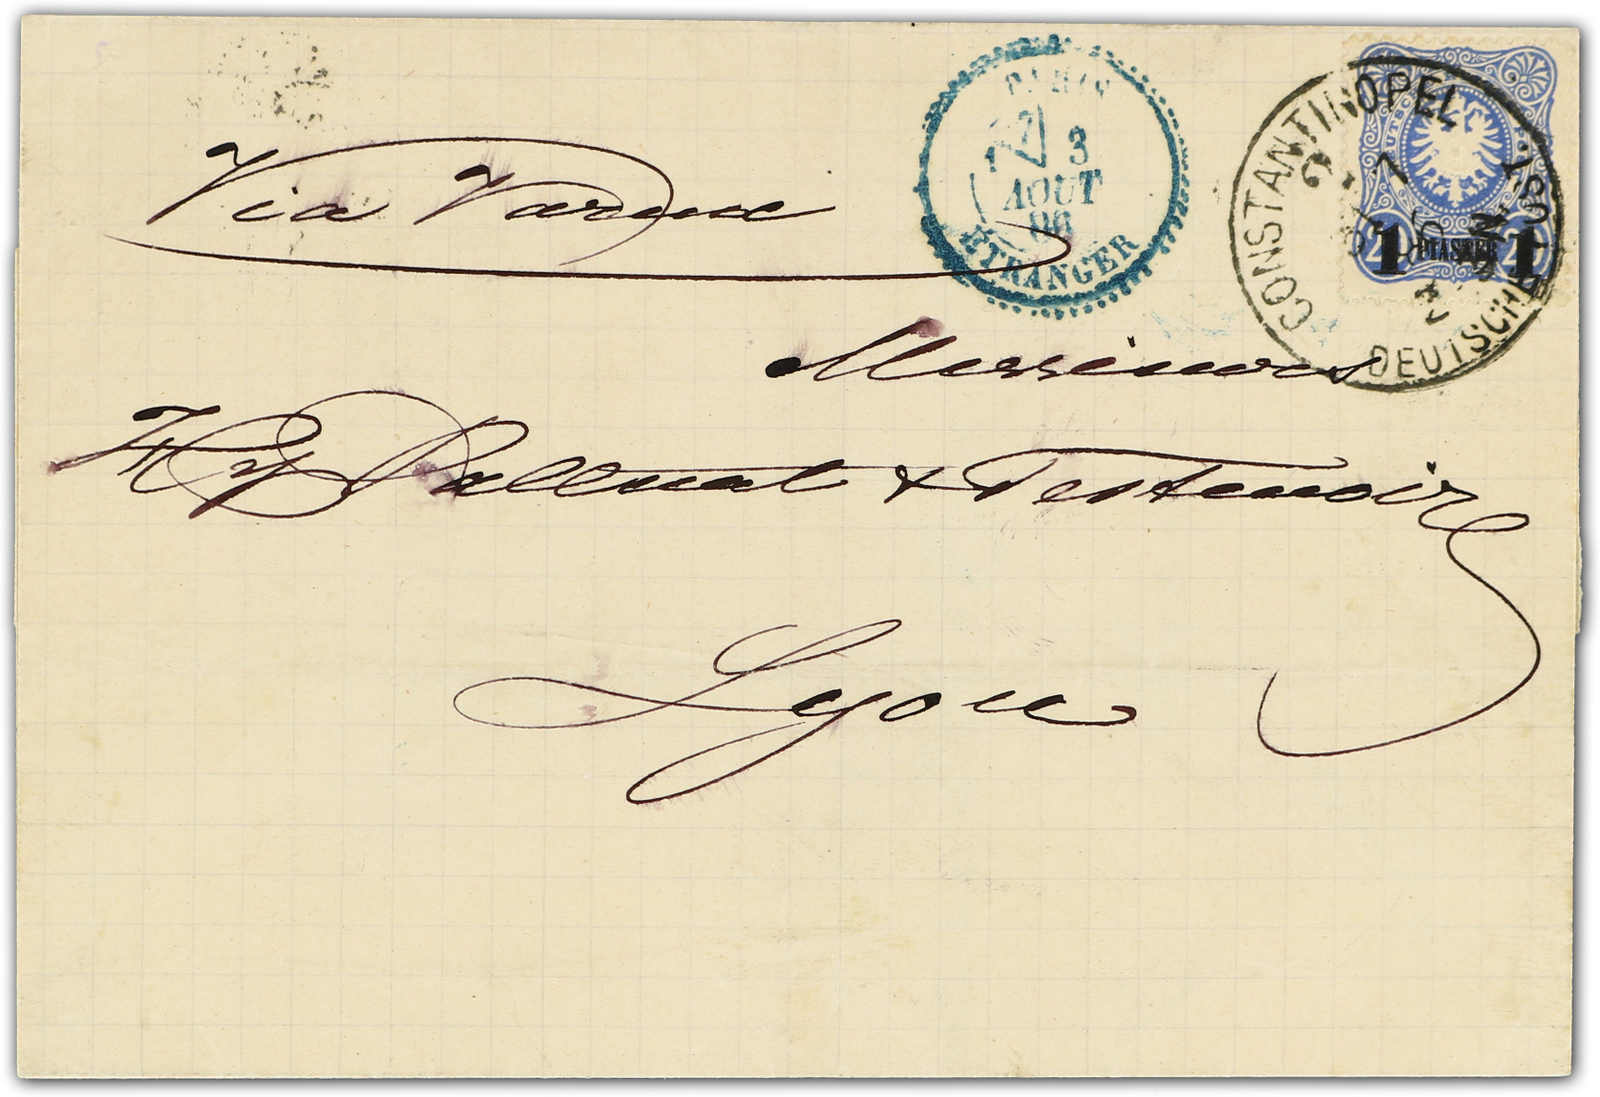 Via Varna
PARIS
3
AOUT
86
ETRANGER
CONSTANTINOPEL
DEUTSCHE POST
1 PIASTER 1
Messieurs
Hy Palluat & Testenoire
Lyon